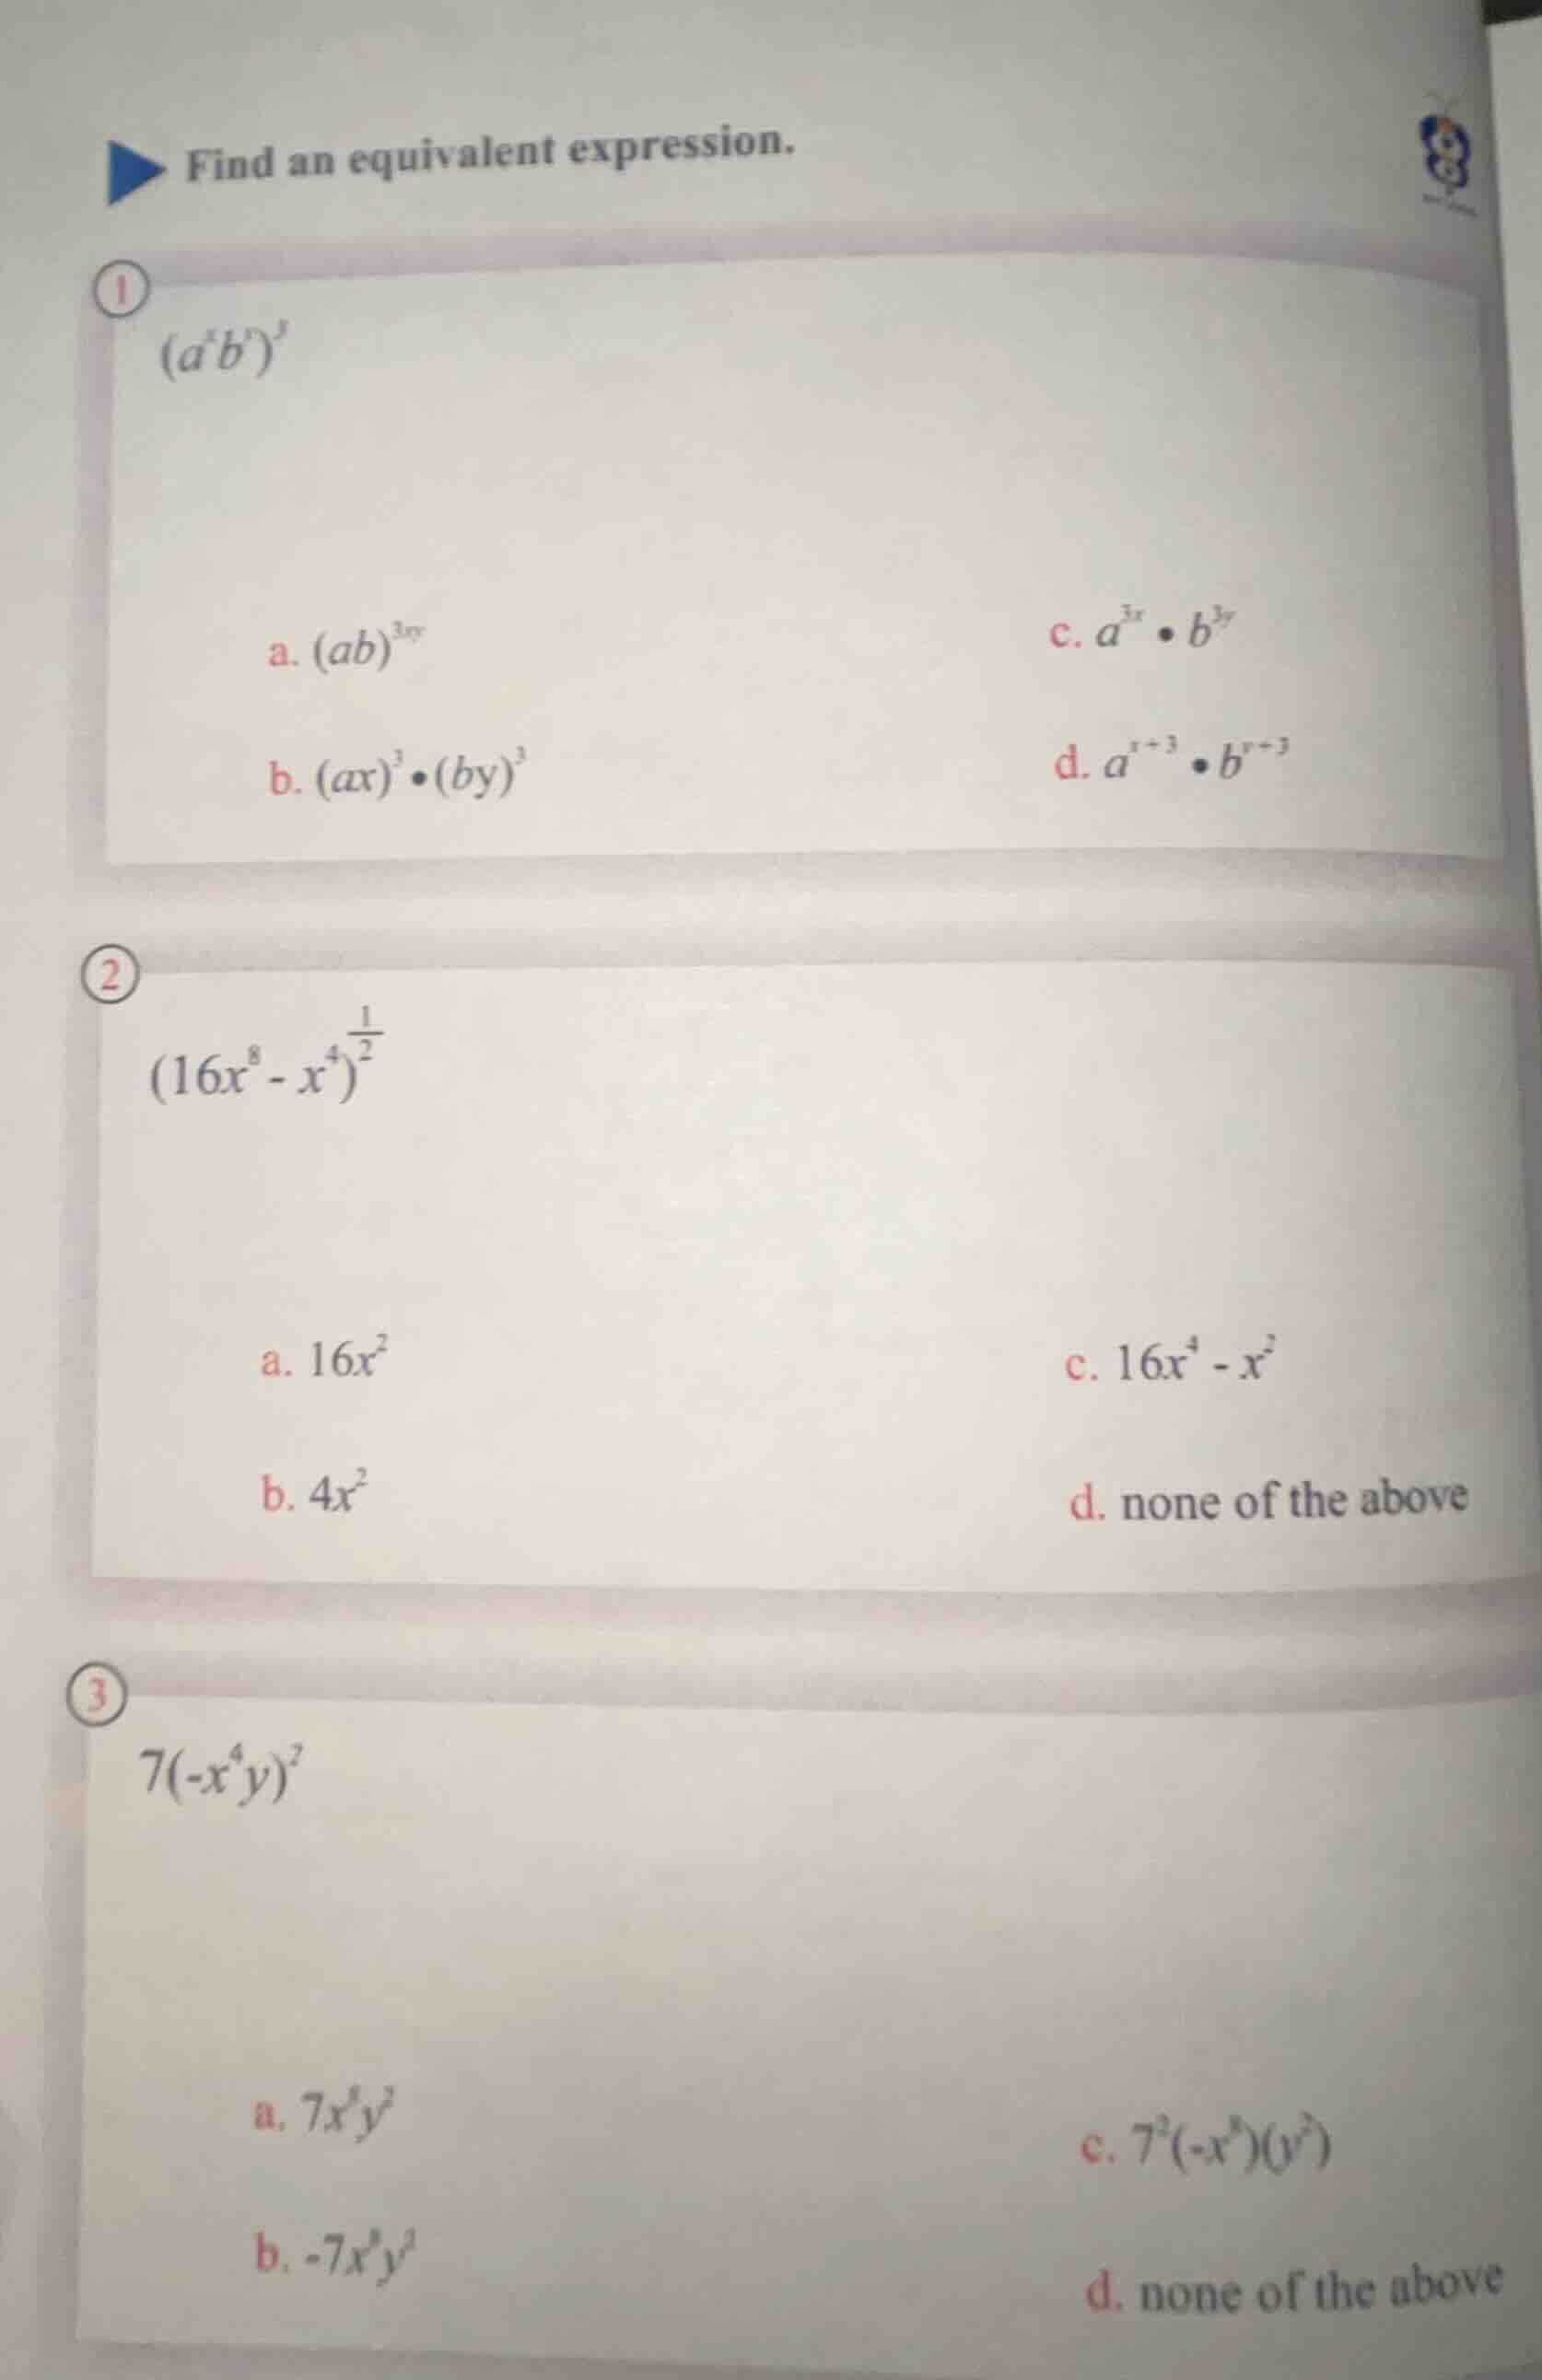 Find an equivalent expression.
1
(aˣbʸ)³
a. (ab)³ˣʸ
c. a³ˣ • b³ʸ
b. (ax)³ • (by)³
d. aˣ⁺³ • bʸ⁺³
2
(16x⁸ - x⁴)^(1/2)
a. 16x²
c. 16x⁴ - x²
b. 4x²
d. none of the above
3
7(-x⁴y)²
a. 7x⁸y²
c. 7²(-x⁸)(y²)
b. -7x⁸y²
d. none of the above